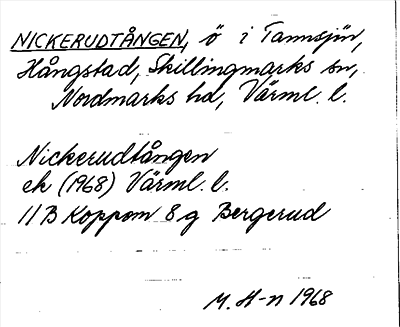 NICKERUDTÅNGEN, ö i Tannsjön,
Hångstad, Skillingmarks sn,
Nordmarks hd, Värml. l.
Nickerudtången
ek (1968) Värml. l.
11 B Koppom 8 g Bergerud
M. H-n 1968